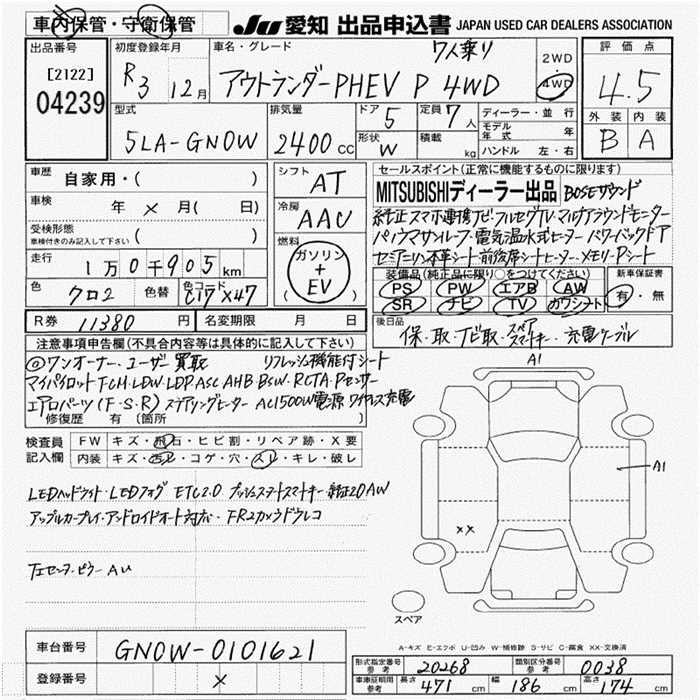 車内保管・守衛保管
JU 愛知 出品申込書 JAPAN USED CAR DEALERS ASSOCIATION
出品番号
[2122]
04239
初度登録年月
R3 12月
車名・グレード 7人乗り
アウトランダーPHEV P 4WD
2WD
4WD
評価点
4.5
外装 内装
B A
型式
5LA-GN0W
排気量
2400 CC
ドア 5
形状 W
定員 7人
積載 kg
ディーラー・並行
モデル年式 年
ハンドル 左・右
車歴 自家用・( )
車検 年 × 月( 日)
受検形態
車検付きのみ記入して下さい ( )
走行 1万0千905km
色 クロ2 色替 色コード C17 X47
シフト AT
冷房 AAC
燃料 ガソリン + EV
R券 11380 円 名変期限 月 日
セールスポイント(正常に機能するものに限ります)
MITSUBISHIディーラー出品 BOSEサウンド
純正スマホ連携ナビ・フルセグTV・マルチアラウンドモニター
パノラマサンルーフ・電気温水式ヒーター パワーバックドア
セミアニリン本革シート・前後席シートヒーター・メモリーPシート
装備品(純正品に限り〇をつけてください)
PS PW エアB AW
SR ナビ TV カワシート
新車保証書
有・無
後日品
保・取・ナビ取・スペアスマートキー・充電ケーブル
注意事項申告欄(不具合内容等は具体的に記入して下さい)
◎ワンオーナー・ユーザー買取 リフレッシュ機能付シート
マイパイロット・FCM・LDW・LDP・ASC・AHB・BSW・RCTA・Pセンサー
エアロパーツ(F・S・R) ステアリングヒーター AC1500W電源 ワイヤレス充電
修復歴 有 (箇所
検査員記入欄
FW キズ・飛石・ヒビ割・リペア跡・X要
内装 キズ・汚レ・コゲ・穴・スレ・キレ・破レ
LEDヘッドライト・LEDフォグ ETC2.0 プッシュスタートスマートキー 純正20AW
アップルカープレイ・アンドロイドオート対応・FR2カメラドラレコ
A1
A1
××
スペア
A-キズ E-エクボ U-凹み W-補修跡 S-サビ C-腐食 XX-交換済
車台番号 GN0W-0101621
登録番号 ×
形式指定番号 参考 20268 類別区分番号 参考 0038
車庫証明用 参考 長さ 471 cm 幅 186 cm 高さ 174 cm